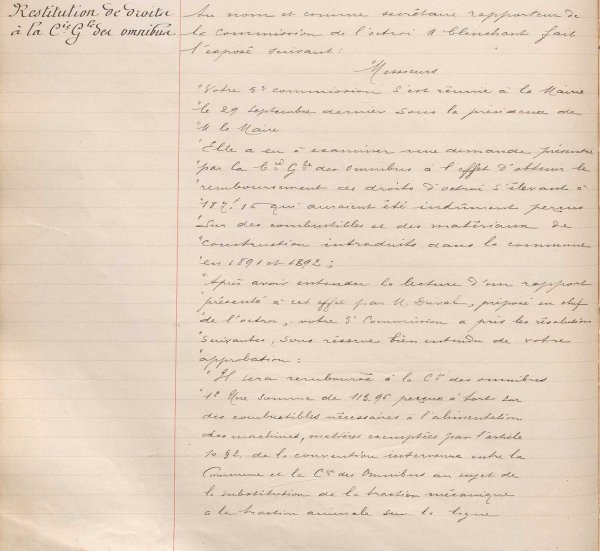 Restitution de droits
à la Cie Gle des omnibus
Au nom et comme secrétaire rapporteur de
la Commission de l'octroi M Clinchant fait
l'exposé suivant :
Messieurs
"Votre 5e commission s'est réunie à la Mairie
"le 29 Septembre dernier sous la présidence de
"M le Maire
"Elle a eu à examiner une demande présentée
"par la Cie Gle des Omnibus à l'effet d'obtenir le
"remboursement de droits d'octroi s'élevant à
"187f 16 qui auraient été indûment perçus
"sur des combustibles et des matériaux de
"construction introduits dans la commune
"en 1891 et 1892 ;
"Après avoir entendu la lecture d'un rapport
"présenté à cet effet par M. Duval, préposé en chef
"de l'octroi, votre 5e Commission a pris les résolutions
"suivantes, sous réserve bien entendu de votre
"approbation :
"Il sera remboursé à la Cie des omnibus
"1° Une somme de 113.96 perçue à tort sur
des combustibles nécessaires à l'alimentation
des machines, matières exemptées par l'article
de la convention intervenue entre la
Commune et la Cie des Omnibus au sujet de
la substitution de la traction mécanique
à la traction animale sur la ligne